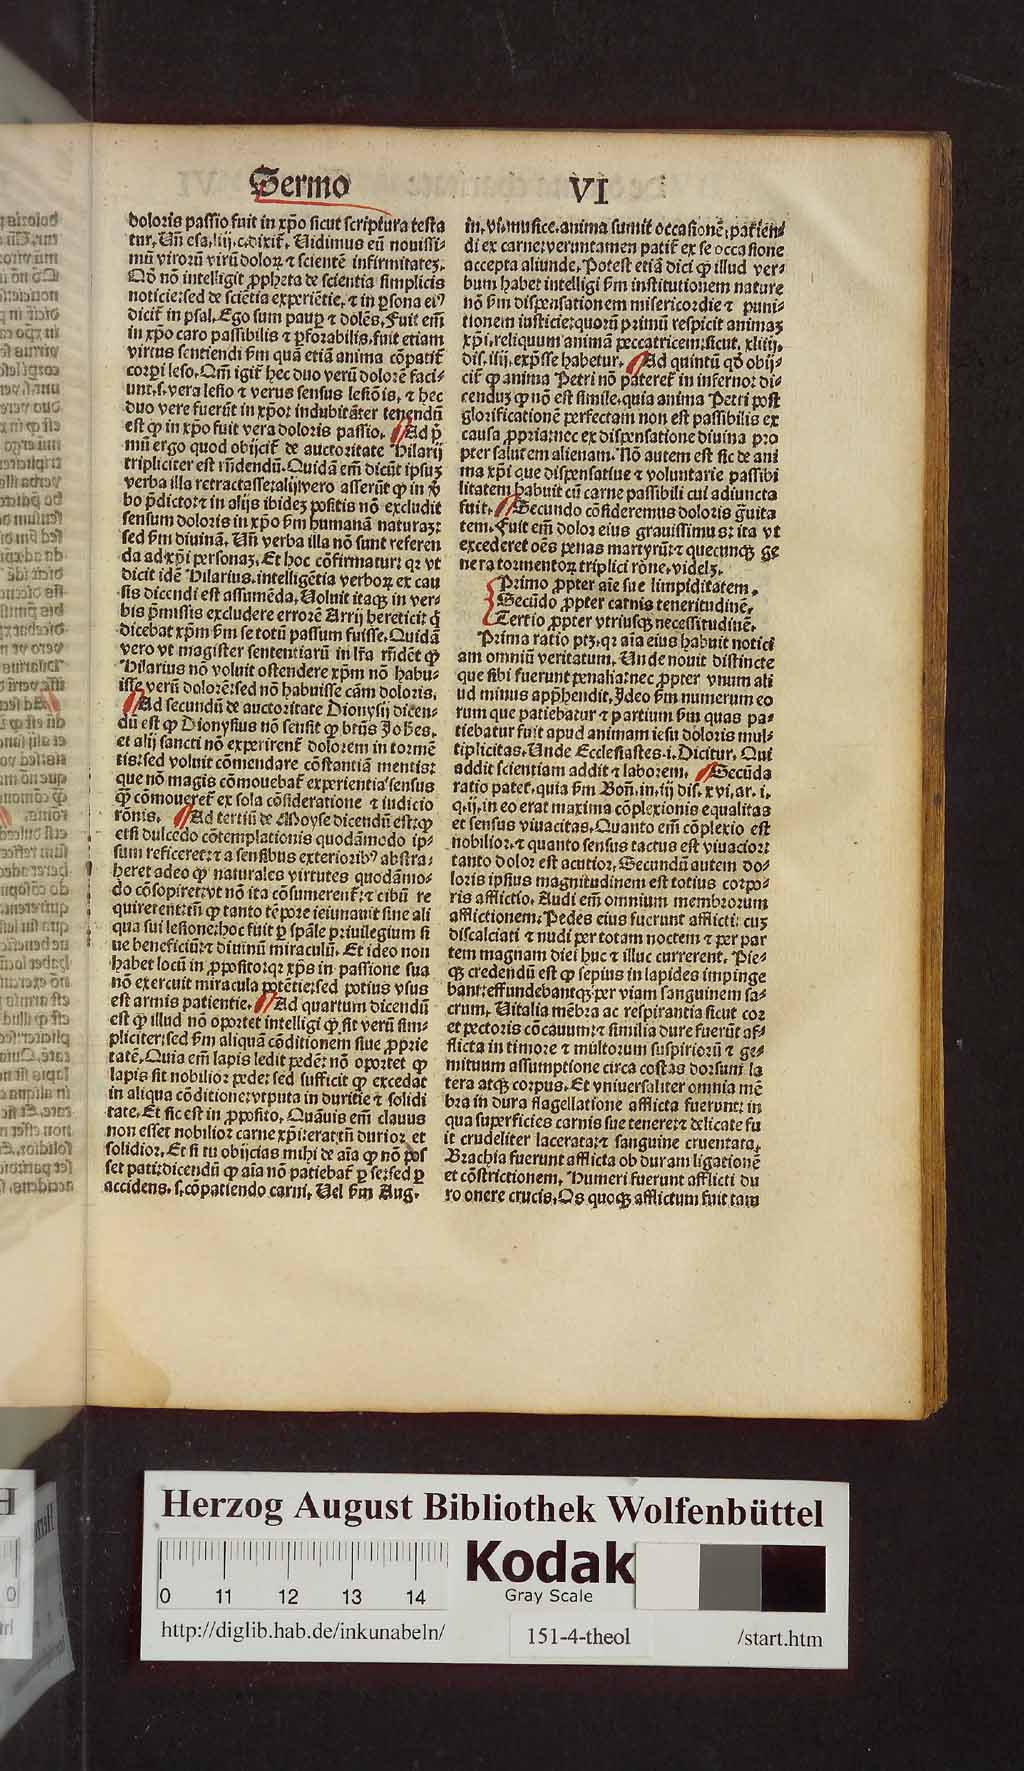 Sermo VI
doloris passio fuit in xp̄o sicut scriptura testa
tur. Un̄ esa. liij. c. dixit. Uidimus eū nouissi-
mū virorū virū dolorꝝ ⁊ scientē infirmitatez.
Qd̄ nō intelligit ꝓpheta de scientia simplicis
noticie: sed de sciētia experiētie. ⁊ in ꝑsona eiꝰ
dicit̄ in psal. Ego sum paup̄ ⁊ dolēs. Fuit em̄
in xp̄o caro passibilis ⁊ ꝑforabilis. fuit etiam
virtus sentiendi ẜm quā etiā anima cōpatit̄
corpi leso. Qm̄ igit̄ hec duo verū dolorē faci-
unt. s. vera lesio ⁊ verus sensus lesiōis. ⁊ hec
duo vere fuerūt in xp̄o: indubitāter tenendū
est ꝙ in xp̄o fuit vera doloris passio. Ad p̄
mū ergo quod obijcit̄ de auctoritate Hilarij
tripliciter est rn̄dendū. Quidā em̄ dicūt ipsuz
verba illa retractasse: alij vero asserūt ꝙ in ꝟ
bo p̄dicto: ⁊ in alijs ibidez positis nō excludit
sensum doloris in xp̄o ẜm humanā naturaz:
sed ẜm diuinā. Un̄ verba illa nō sunt referen
da ad xp̄i personaz. Et hoc cōfirmatur: qr vt
dicit idē Hilarius. intelligētia verboꝝ ex cau
sis dicendi est assumēda. Uoluit itaqꝫ in ver-
bis p̄missis excludere errorē Arrij heretici: q̄
dicebat xp̄m ẜm se totū passum fuisse. Quidā
vero vt magister sententiarū in lr̄a rn̄dēt ꝙ
Hilarius nō voluit ostendere xp̄m nō habu-
isse verū dolorē: sed nō habuisse cām doloris.
Ad secundū de auctoritate Dionysij dicen-
dū est ꝙ Dionysius nō sensit ꝙ btūs Johēs.
et alij sancti nō experirent̄ dolorem in tormē
tis: sed voluit cōmendare cōstantiā mentis:
que nō magis cōmouebat̄ experientia sensus
ꝙ̄ cōmoueret̄ ex sola cōsideratione ⁊ iudicio
rōnis. Ad tertiū de Moyse dicendū est: ꝙ
etsi dulcedo cōtemplationis quodāmodo ip-
sum reficeret: ⁊ a sensibus exterioribꝰ abstra-
heret adeo ꝙ naturales virtutes quodāmo-
do cōsopiret: vt nō ita cōsumerent̄: ⁊ cibū re
quirerent: tn̄ ꝙ tanto tēpore ieiunauit sine ali
qua sui lesione: hoc fuit ꝑ spāle priuilegium si
ue beneficiū: ⁊ diuinū miraculū. Et ideo non
habet locū in ꝓposito: qr xp̄s in passione sua
nō exercuit miracula potētie: sed potius vsus
est armis patientie. Ad quartum dicendū
est ꝙ illud nō oportet intelligi ꝙ sit verū sim-
pliciter: sed ẜm aliquā cōditionem siue ꝓprie
tatē. Quia em̄ lapis ledit pedē: nō oportet ꝙ
lapis sit nobilior pede: sed sufficit ꝙ excedat
in aliqua cōditione: vtputa in duritie ⁊ solidi
tate. Et sic est in ꝓposito. Quāuis em̄ clauus
non esset nobilior carne xp̄i: erat tn̄ durior et
solidior. Et si tu obijcias mihi de aīa ꝙ nō pos
set pati: dicendū ꝙ aīa nō patiebat̄ ꝑ se: sed ꝑ
accidens. s. cōpatiendo carni. Uel ẜm Aug.
in. vi. musice. anima sumit occasionē: patien-
di ex carne: veruntamen patit̄ ex se occasione
accepta aliunde. Potest etiā dici ꝙ illud ver-
bum habet intelligi ẜm institutionem nature
nō ẜm dispensationem misericordie ⁊ puni-
tionem iusticie: quorū primū respicit animaz
xp̄i, reliquum animā peccatricem: sicut. xliiij.
dis. iiij. exp̄sse habetur. Ad quintū qd̄ obij-
cit̄ ꝙ anima Petri nō pateret̄ in inferno: di-
cenduz ꝙ nō est simile. quia anima Petri post
glorificationē perfectam non est passibilis ex
causa ꝓpria: nec ex dispensatione diuina pro
pter salutem alienam. Nō autem est sic de ani
ma xp̄i que dispensatiue ⁊ voluntarie passibi
litatem habuit cū carne passibili cui adiuncta
fuit. Secundo cōsideremus doloris ḡuita
tem. Fuit em̄ dolor eius grauissimus: ita vt
excederet oēs penas martyrū: ⁊ quecunqꝫ ge
nera tormentoꝝ triplici rōne. videlz.
Primo ꝓpter aīe sue limpiditatem.
Secūdo ꝓpter carnis teneritudinē.
Tertio ꝓpter vtriusqꝫ necessitudinē.
Prima ratio ptz. qr aīa eius habuit notici
am omniū veritatum. Unde nouit distincte
que sibi fuerunt penalia: nec ꝓpter vnum ali
ud minus app̄hendit. Jdeo ẜm numerum eo
rum que patiebatur ⁊ partium ẜm quas pa-
tiebatur fuit apud animam iesu doloris mul-
tiplicitas. Unde Ecclesiastes. i. Dicitur. Qui
addit scientiam addit ⁊ laborem. Secūda
ratio patet. quia ẜm Boñ. in. iij dis. xvi. ar. i.
q. ij. in eo erat maxima cōplexionis equalitas
et sensus viuacitas. Quanto em̄ cōplexio est
nobilior. ⁊ quanto sensus tactus est viuacior:
tanto dolor est acutior. Secundū autem do-
loris ipsius magnitudinem est totius corpo-
ris afflictio. Audi em̄ omnium membrorum
afflictionem: Pedes eius fuerunt afflicti: cuz
discalciati ⁊ nudi per totam noctem ⁊ per par
tem magnam diei huc ⁊ illuc currerent. Pie-
qꝫ credendū est ꝙ sepius in lapides impinge
bant: effundebantqꝫ per viam sanguinem sa-
crum. Uitalia mēbra ac respirantia sicut cor
et pectoris cōcauum: ⁊ similia dure fuerūt af-
flicta in timore ⁊ multorum suspiriorū ⁊ ge-
mituum assumptione circa costas dorsum la
tera atqꝫ corpus. Et vniuersaliter omnia mē
bra in dura flagellatione afflicta fuerunt: in
qua superficies carnis sue tenere: ⁊ delicate fu
it crudeliter lacerata: ⁊ sanguine cruentata.
Brachia fuerunt afflicta ob duram ligationē
et cōstrictionem. Humeri fuerunt afflicti du
ro onere crucis. Os quoqꝫ afflictum fuit tam
Herzog August Bibliothek Wolfenbüttel
0 11 12 13 14
Kodak
Gray Scale
http://diglib.hab.de/inkunabeln/ 151-4-theol /start.htm